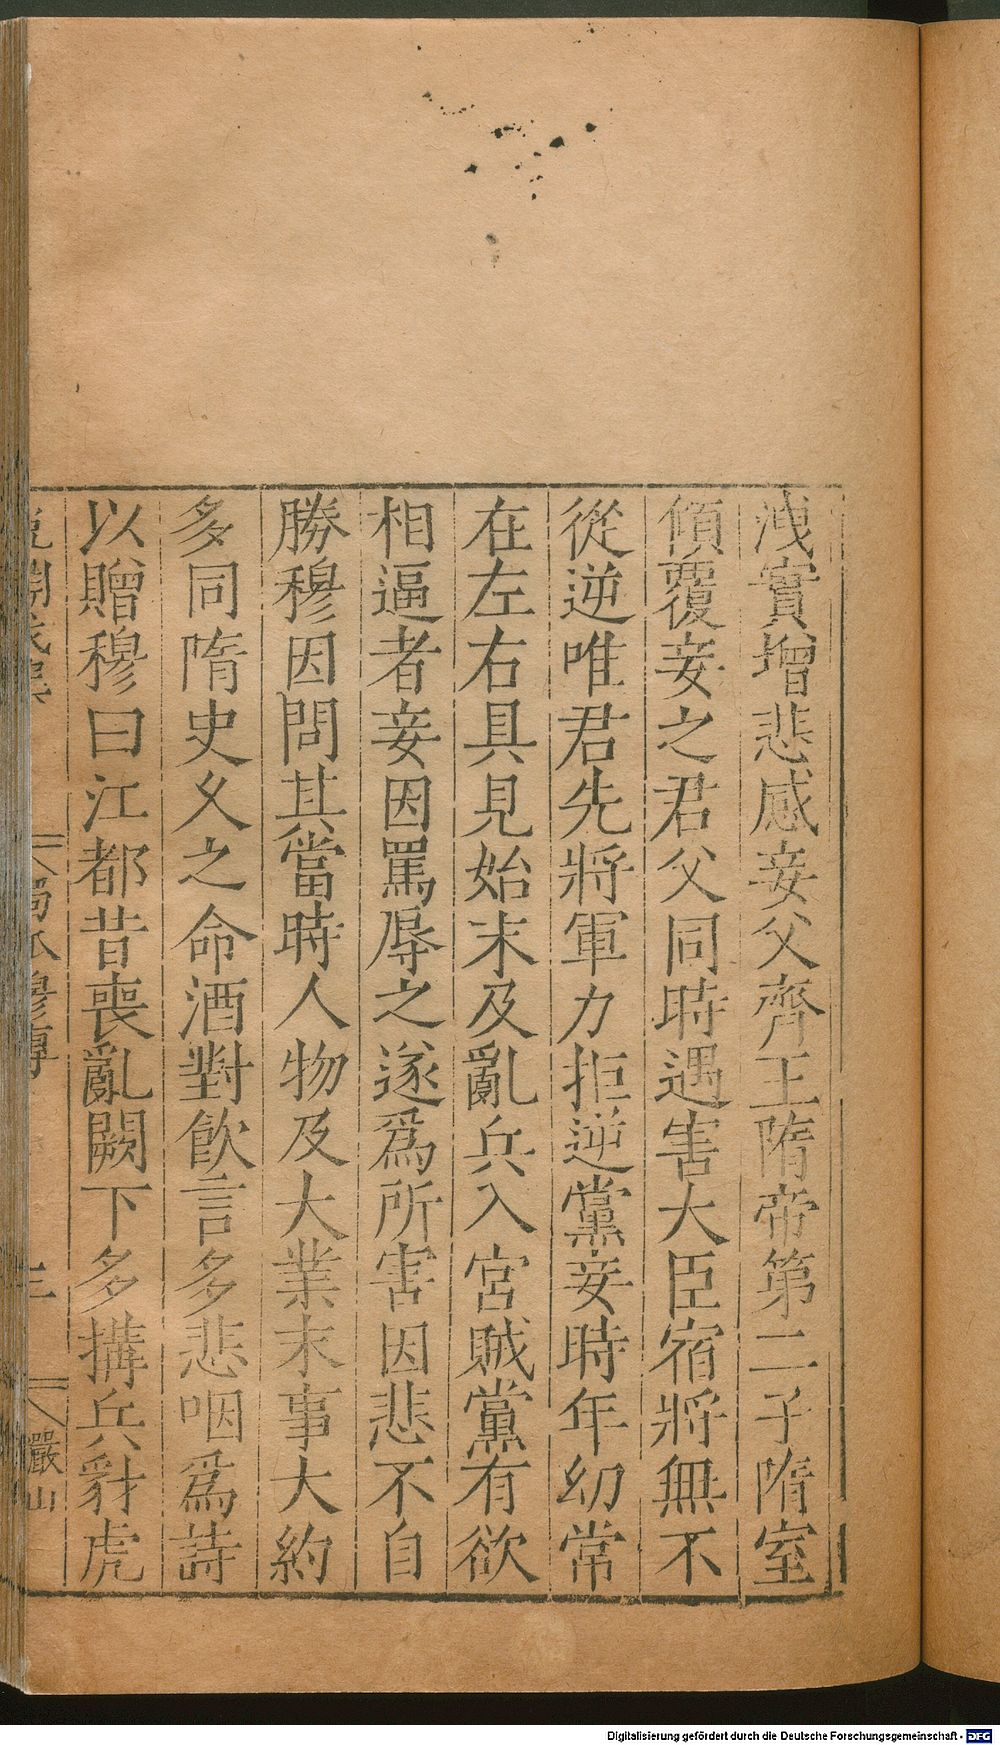 洩實增悲感妾父齊王隋帝第二子隋室
傾覆妾之君父同時遇害大臣宿將無不
從逆唯君先將軍力拒逆黨妾時年幼常
在左右具見始末及亂兵入宮賊黨有欲
相逼者妾因罵辱之遂爲所害因悲不自
勝穆因問其當時人物及大業末事大約
多同隋史乆之命酒對飮言多悲咽爲詩
以贈穆曰江都昔喪亂闕下多搆兵豺虎
穆傳
嚴山
Digitalisierung gefördert durch die Deutsche Forschungsgemeinschaft - DFG